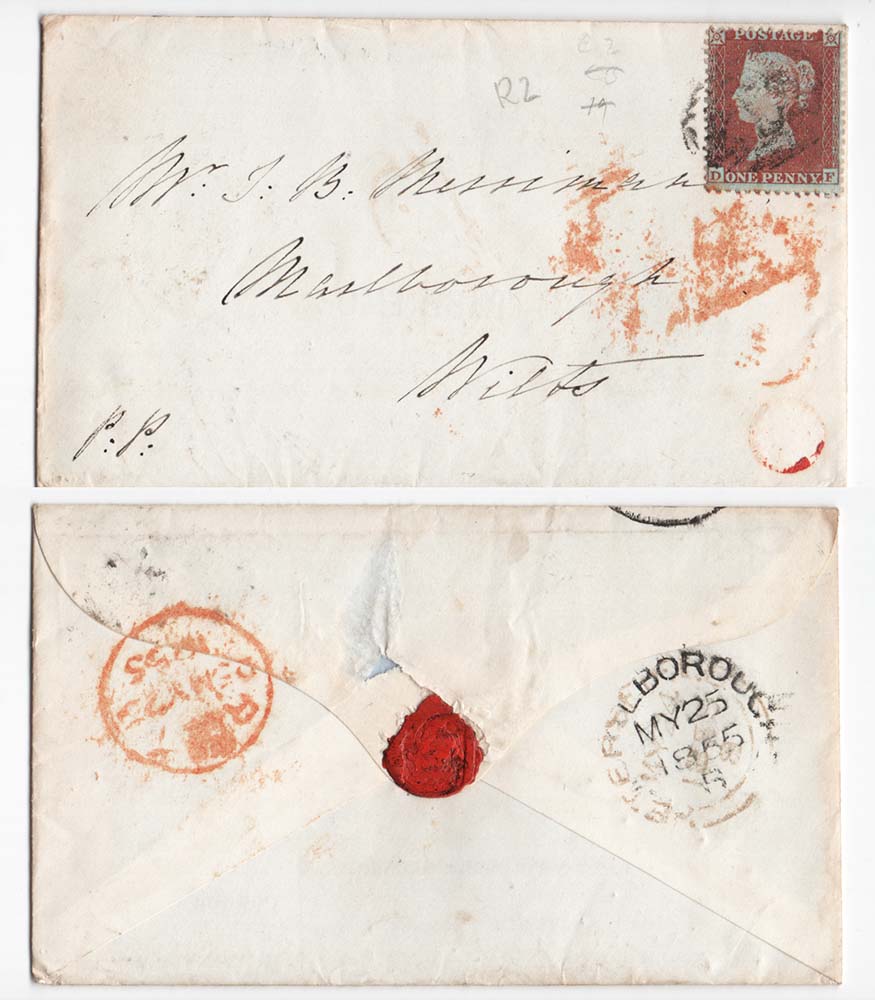 R2
POSTAGE
D ONE PENNY F
Mr. T. B. Merriman
Marlborough
Wilts
P. P.
MARLBOROUGH
MY 25
1855